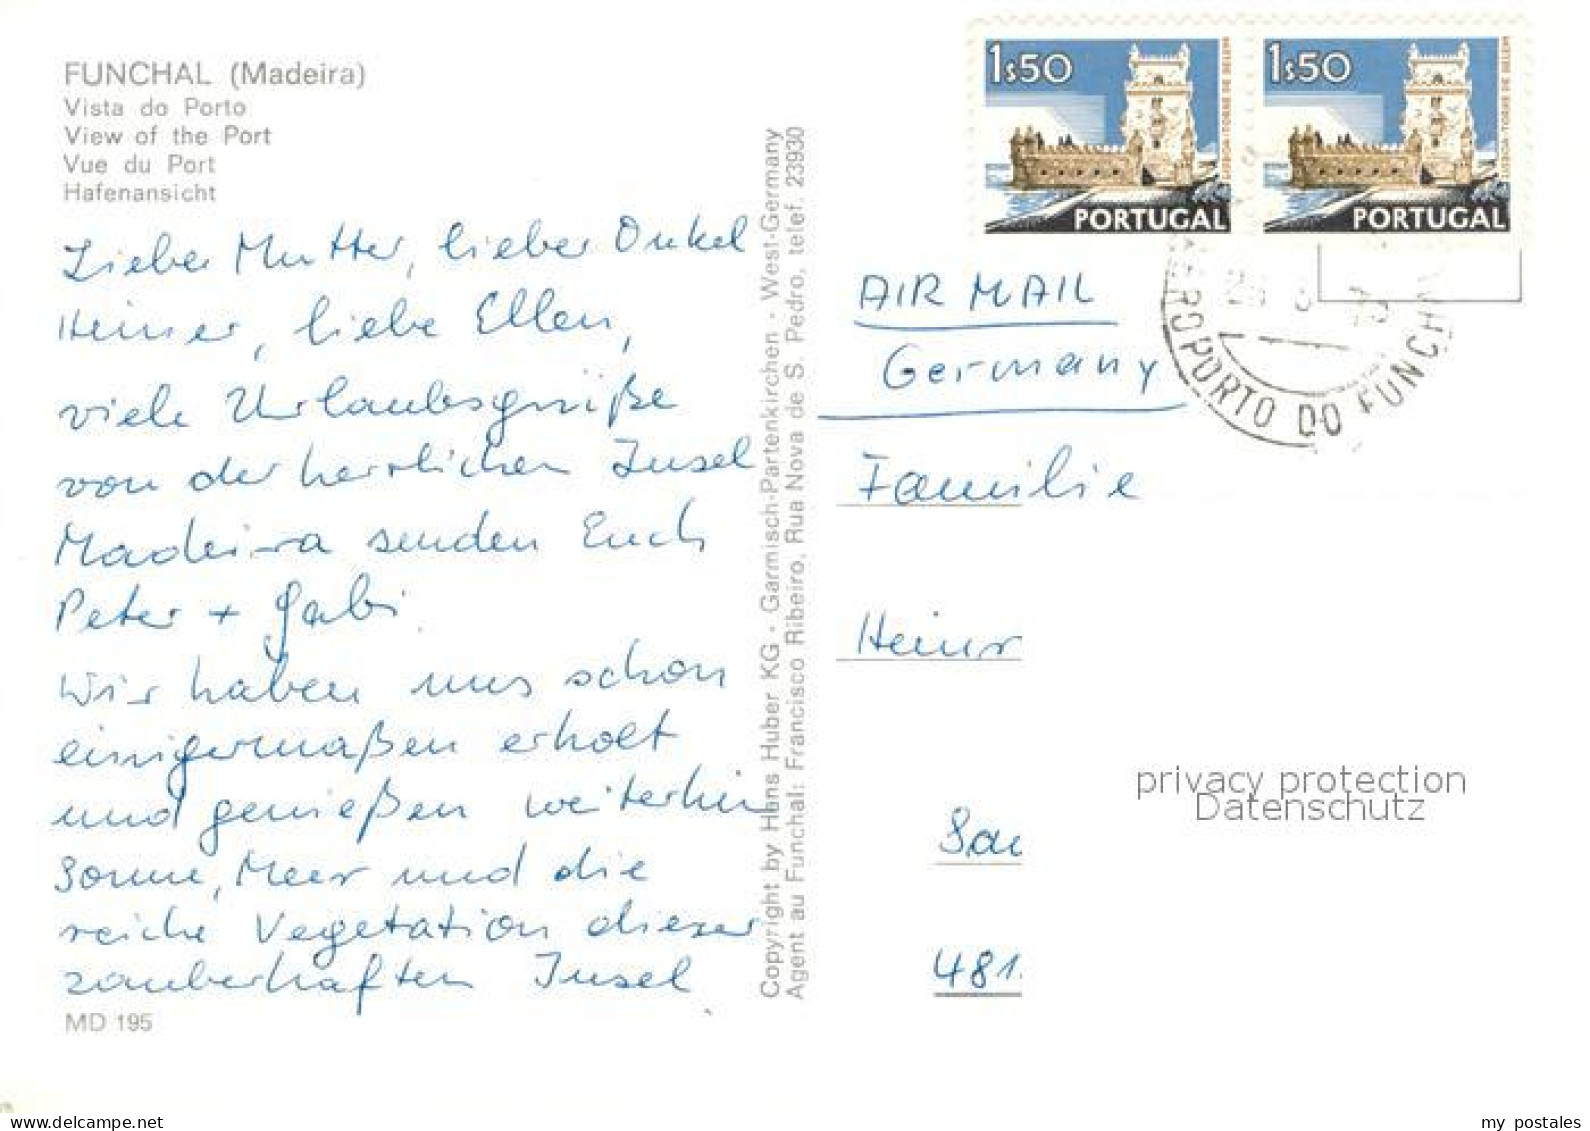 FUNCHAL (Madeira)
Vista do Porto
View of the Port
Vue du Port
Hafenansicht
Liebe Mutter, lieber Onkel
Heiner, liebe Ellen,
viele Urlaubsgrüße
von der herrlichen Insel
Madeira senden Euch
Peter + Gabi.
Wir haben uns schon
einigermaßen erholt
und genießen weiterhin
Sonne, Meer und die
reiche Vegetation dieser
zauberhaften Insel
MD 195
Copyright by Hans Huber KG · Garmisch-Partenkirchen · West-Germany
Agent au Funchal: Francisco Ribeiro, Rua Nova de S. Pedro, telef. 23930
1$50
LISBOA-TORRE DE BELEM
PORTUGAL
1$50
LISBOA-TORRE DE BELEM
PORTUGAL
AEROPORTO DO FUNCHAL
AIR MAIL
Germany
Familie
Heinr
481
privacy protection
Datenschutz
my postales